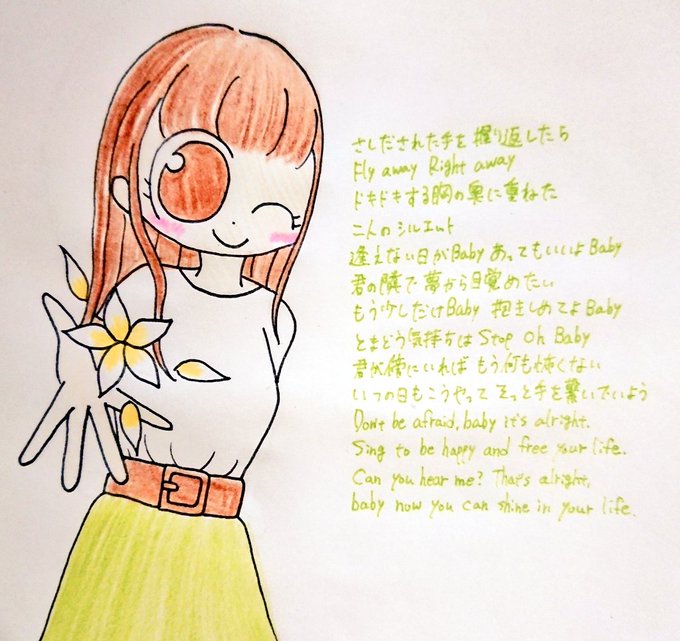 さしだされた手を握り返したら
Fly away Right away
ドキドキする胸の奥に重ねた
二人のシルエット
逢えない日がBaby あってもいいよBaby
君の隣で夢から目覚めたい
もう少しだけBaby 抱きしめてよBaby
とまどう気持ちは Stop Oh Baby
君が傍にいれば もう何も怖くない
いつの日もこうやって そっと手を繋いでいよう
Don't be afraid, baby it's alright.
Sing to be happy and free your life.
Can you hear me? That's alright,
baby now you can shine in your life.